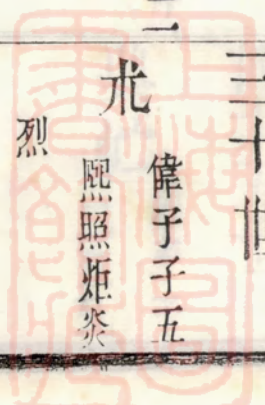 三十世
光
偉子子五
熙照炬炎
烈